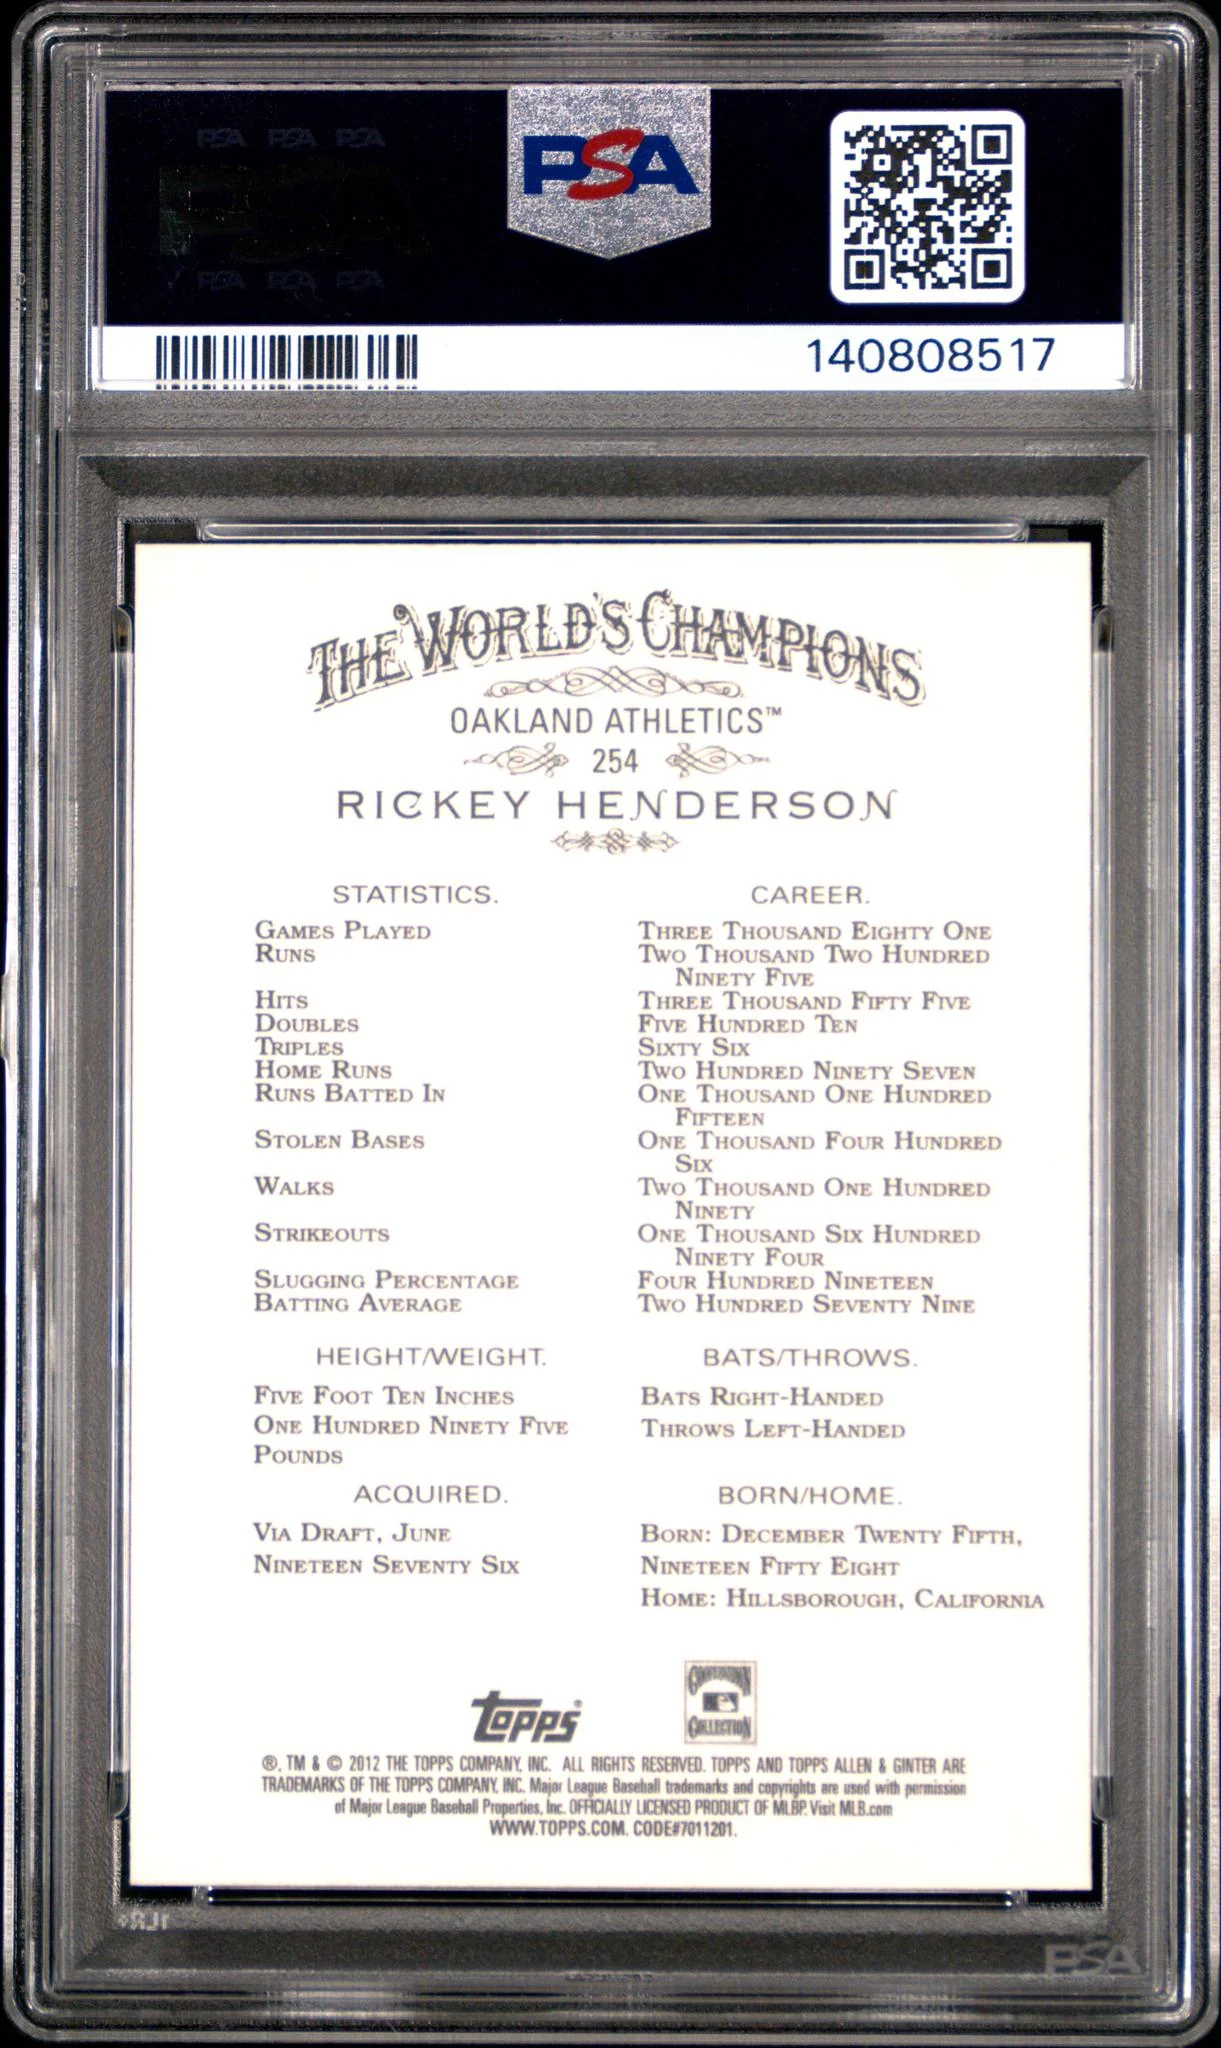 PSA PSA PSA
PSA
PSA PSA PSA
140808517
THE WORLD'S CHAMPIONS
OAKLAND ATHLETICS™
254
RICKEY HENDERSON
STATISTICS. CAREER.
GAMES PLAYED THREE THOUSAND EIGHTY ONE
RUNS TWO THOUSAND TWO HUNDRED
NINETY FIVE
HITS THREE THOUSAND FIFTY FIVE
DOUBLES FIVE HUNDRED TEN
TRIPLES SIXTY SIX
HOME RUNS TWO HUNDRED NINETY SEVEN
RUNS BATTED IN ONE THOUSAND ONE HUNDRED
FIFTEEN
STOLEN BASES ONE THOUSAND FOUR HUNDRED
SIX
WALKS TWO THOUSAND ONE HUNDRED
NINETY
STRIKEOUTS ONE THOUSAND SIX HUNDRED
NINETY FOUR
SLUGGING PERCENTAGE FOUR HUNDRED NINETEEN
BATTING AVERAGE TWO HUNDRED SEVENTY NINE
HEIGHT/WEIGHT.
FIVE FOOT TEN INCHES
ONE HUNDRED NINETY FIVE
POUNDS
BATS/THROWS.
BATS RIGHT-HANDED
THROWS LEFT-HANDED
ACQUIRED.
VIA DRAFT, JUNE
NINETEEN SEVENTY SIX
BORN/HOME.
BORN: DECEMBER TWENTY FIFTH,
NINETEEN FIFTY EIGHT
HOME: HILLSBOROUGH, CALIFORNIA
topps®
COOPERSTOWN
COLLECTION
®, TM & © 2012 THE TOPPS COMPANY, INC. ALL RIGHTS RESERVED. TOPPS AND TOPPS ALLEN & GINTER ARE
TRADEMARKS OF THE TOPPS COMPANY, INC. Major League Baseball trademarks and copyrights are used with permission
of Major League Baseball Properties, Inc. OFFICIALLY LICENSED PRODUCT OF MLBP. Visit MLB.com
WWW.TOPPS.COM. CODE#7011201.
PSA